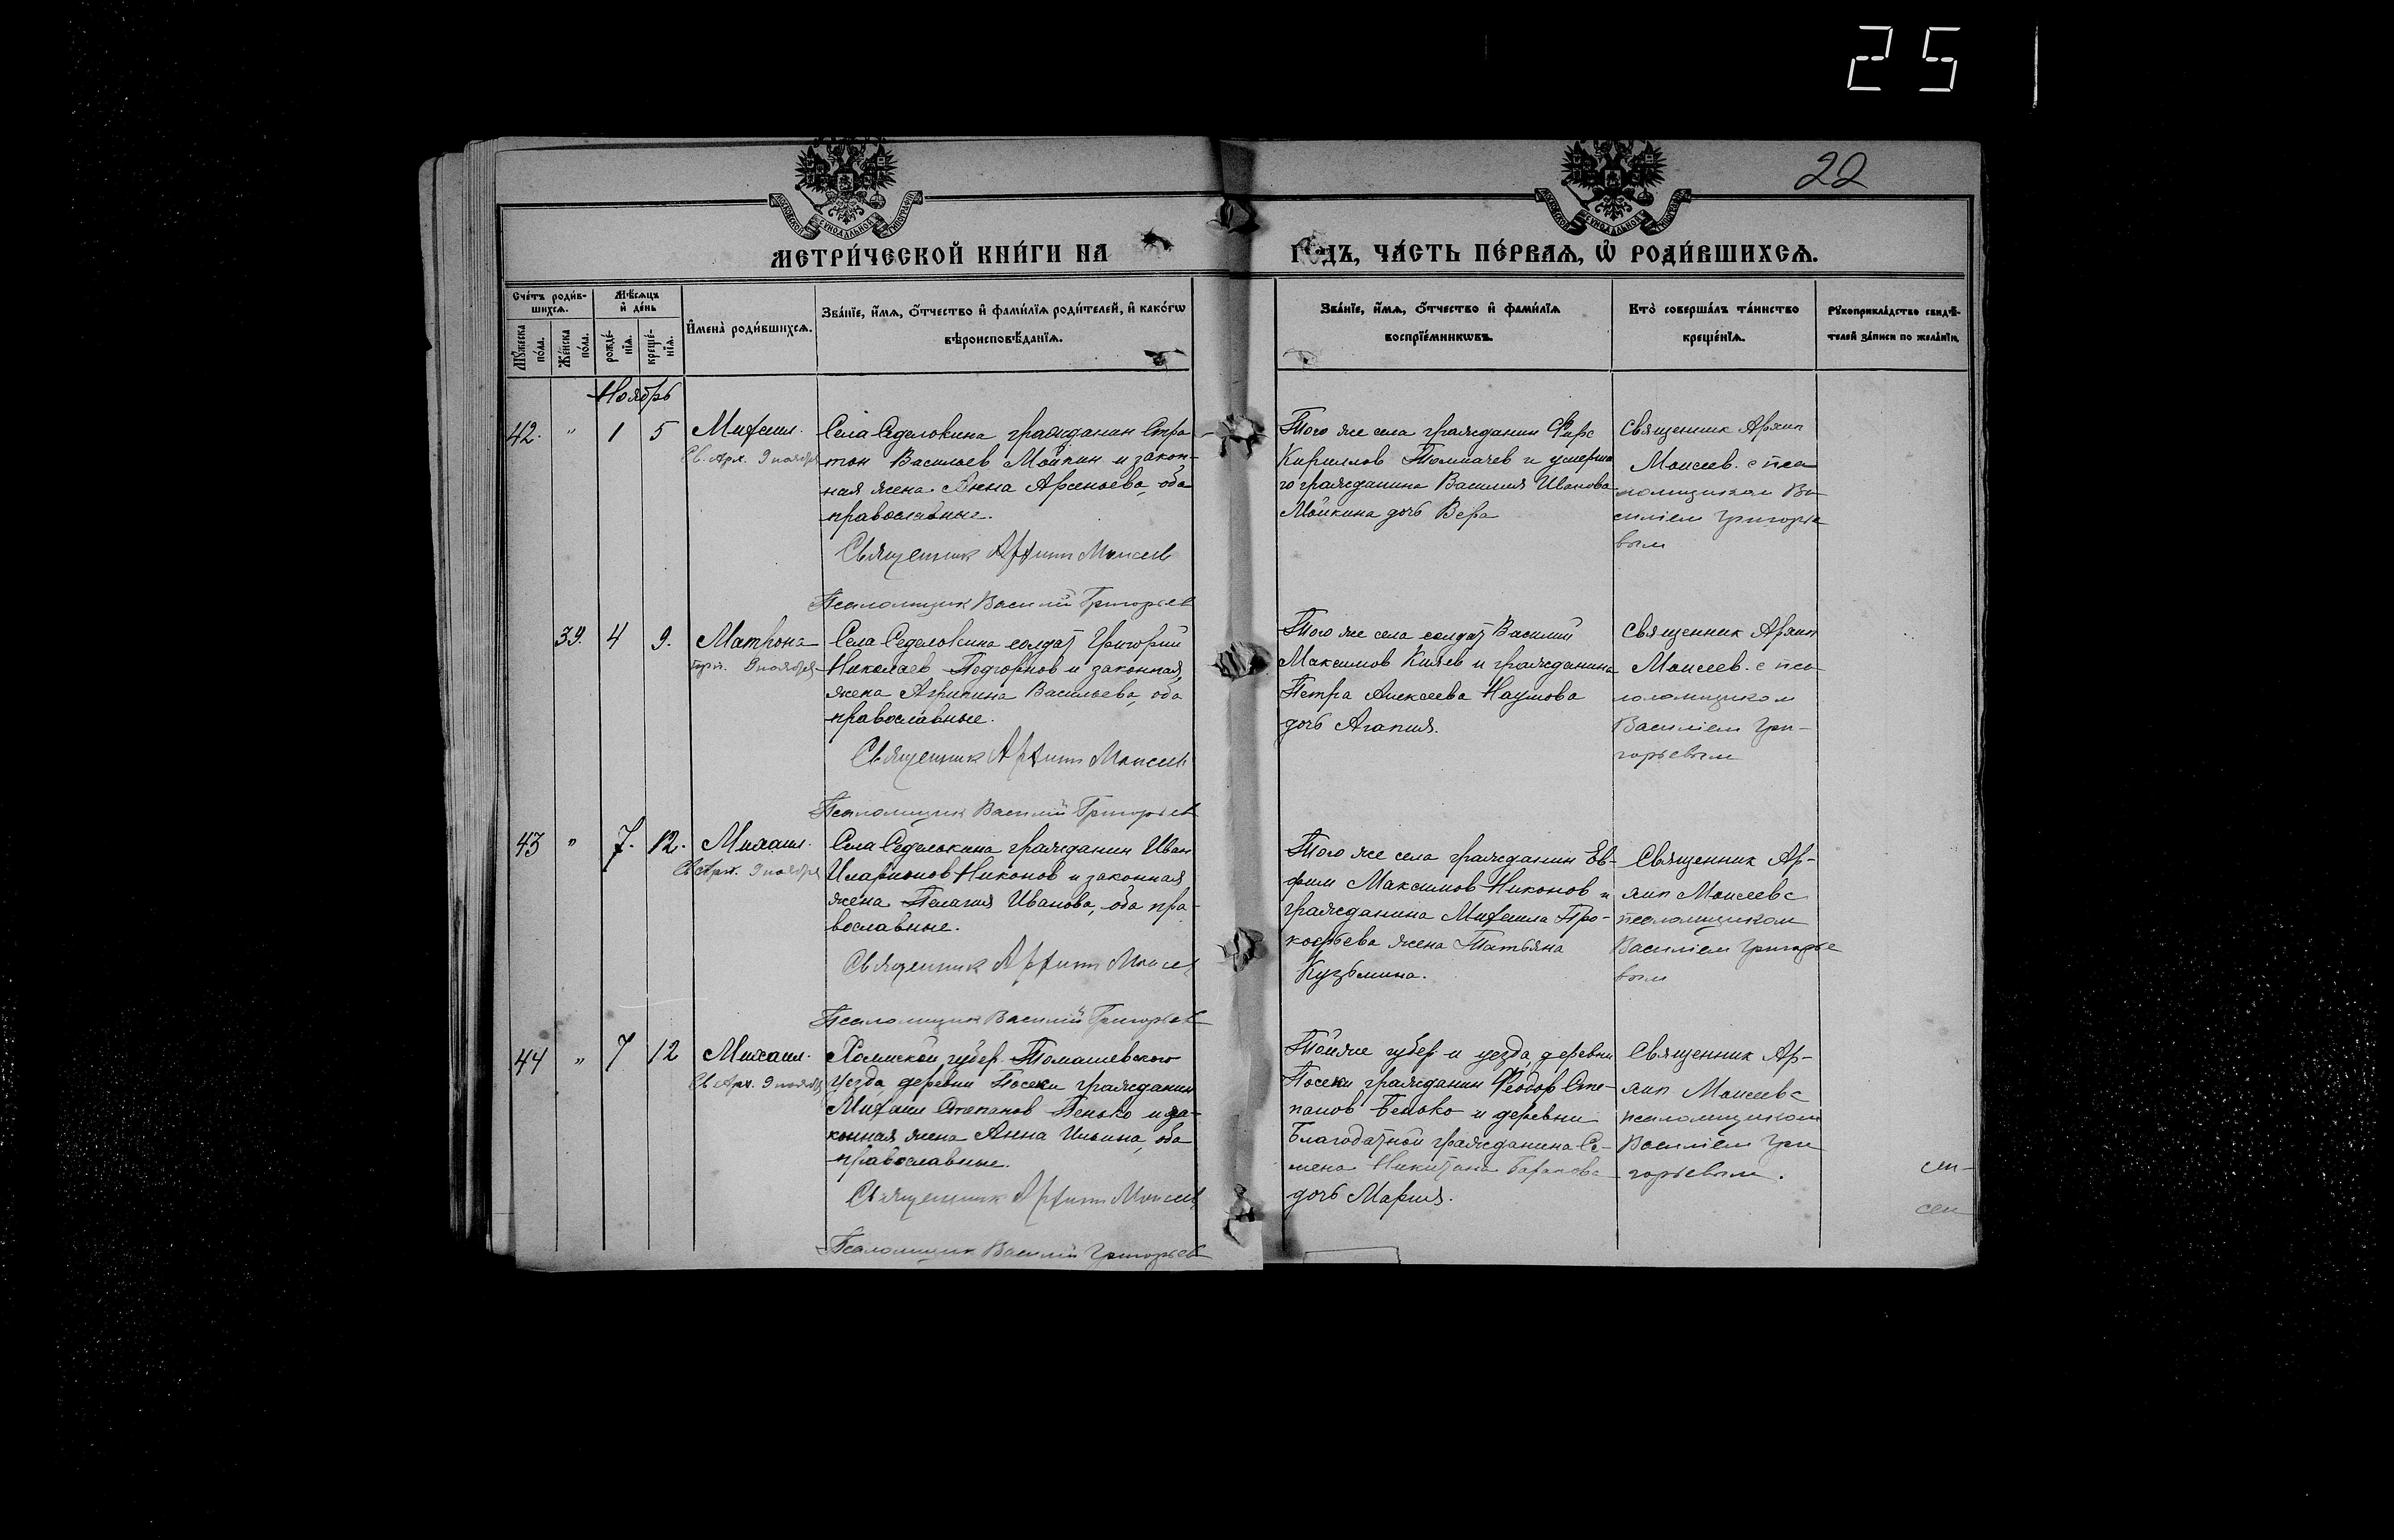 25
22
МОСКОВСКОЙ СѴНОДАЛЬНОЙ ТИПОГРАФІИ
МОСКОВСКОЙ СѴНОДАЛЬНОЙ ТИПОГРАФІИ
МЕТРИ́ЧЕСКОЙ КНИ́ГИ НА
ГОДЪ, ЧА́СТЬ ПЕ́РВАѦ, Ѡ҆ РОДИ́ВШИХСѦ.
Сче́тъ роди́в-
шихсѧ.
Мꙋ́жеска
по́ла.
Же́нска
по́ла.
Мѣ́сѧцъ
и҆ де́нь
рожде́-
нїѧ.
креще́-
нїѧ.
И҆мена̀ роди́вшихсѧ.
Зва́нїе, и҆́мѧ, ѻ҆́тчество и҆ фами́лїѧ роди́телей, и҆ како́гѡ
вѣроисповѣ́данїѧ.
Зва́нїе, и҆́мѧ, ѻ҆́тчество и҆ фами́лїѧ
воспрїе́мникѡвъ.
Кто̀ соверша́лъ та́инство
креще́нїѧ.
Рꙋкоприкла́дство свидѣ́-
телей за́писи по жела́нїю.
Ноябрь
42. " 1 5 Михаил.
Св. Арх. 9 ноября
Села Седелокина гражданин Стра
тон Васильев Мойкин и закон-
ная жена Анна Арсеньева, оба
православные.
Священник Архипп Моисеев
Псаломщик Василий Григорьев
Того же села гражданин Фирс
Кириллов Толмачев и умерша
го гражданина Василия Иванова
Мойкина дочь Вера
Священник Архип
Моисеев с пса
ломщиком Ва-
силием Григорье
вым
39. 4 9. Матрона
9 ноября
Села Седелокина солдат Григорий
Николаев Подгорнов и законная
жена Агрипина Васильева, оба
православные.
Священник Архипп Моисеев
Псаломщик Василий Григорьев
Того же села солдат Василий
Максимов Князев и гражданина
Петра Алексеева Наумова
дочь Агапия.
Священник Архип
Моисеев с пса-
ломщиком
Василием Гри-
горьевым
43 " 7. 12. Михаил.
Св Арх. 9 ноября
Села Седелокина гражданин Иван
Иларионов Никонов и законная
жена Пелагия Иванова, оба пра-
вославные.
Священник Архипп Моисеев
Псаломщик Василий Григорьев
Того же села гражданин Ев-
фим Максимов Никонов и
гражданина Михаила Про-
кофьева жена Татьяна
Кузьмина.
Священник Ар-
хип Моисеев с
псаломщиком
Василием Григорье
вым
44 " 7 12 Михаил.
Св. Арх. 9 ноября
Холмской губер. Томашевского
уезда, деревни Посеки гражданин
Михаил Степанов Бенько и за-
конная жена Анна Ильина, оба
православные.
Священник Архипп Моисеев
Псаломщик Василий Григорьев
Той же губер. и уезда, деревни
Посеки гражданин Феодор Сте-
панов Бенько и деревни
Благодатной гражданина Се-
мена Никитана
дочь Мария.
Священник Ар-
хип Моисеев с
псаломщиком
Василием Гри
горьевым.